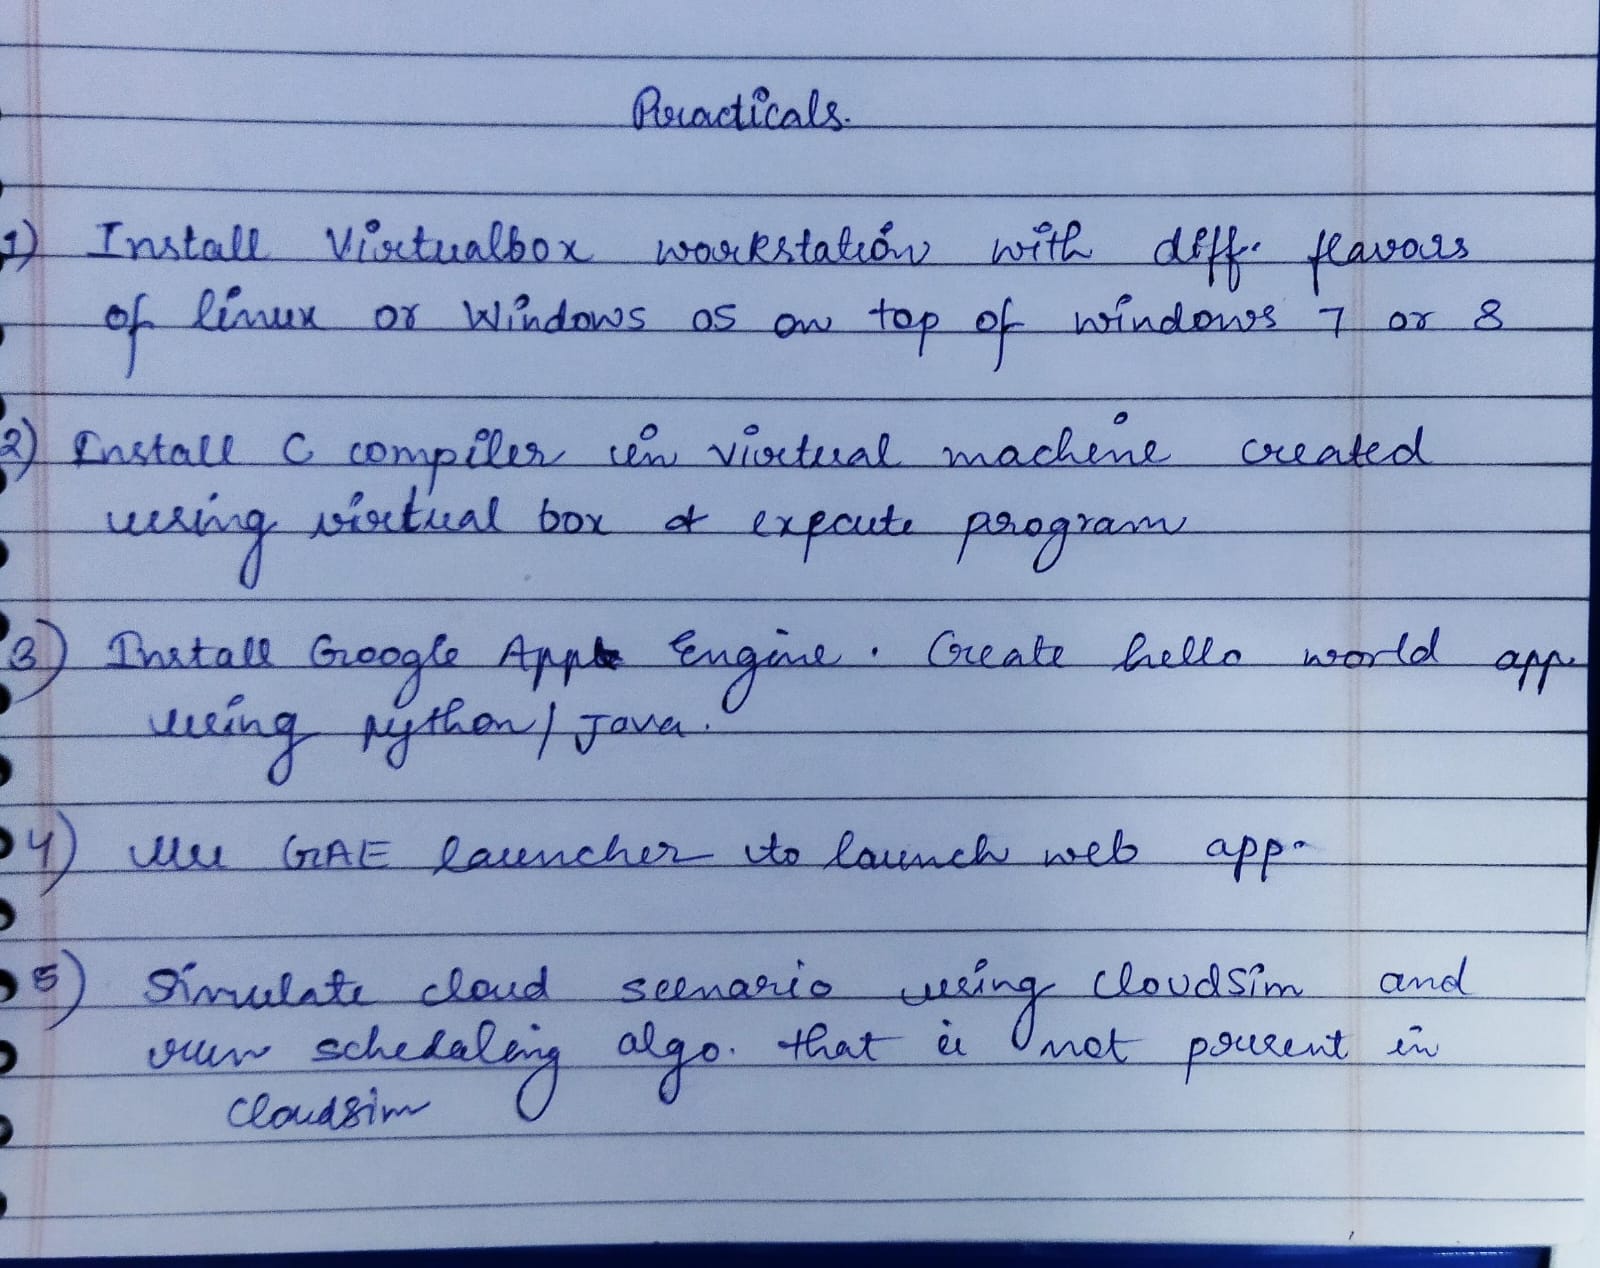 Practicals.
1) Install Virtualbox workstation with diff. flavours
of linux or Windows OS on top of windows 7 or 8
2) Install C compiler in virtual machine created
using virtual box & execute program
3) Install Google App Engine. Create hello world app
using python / Java.
4) Use GAE launcher to launch web app.
5) Simulate cloud scenario using CloudSim and
run scheduling algo. that is not present in
cloudsim